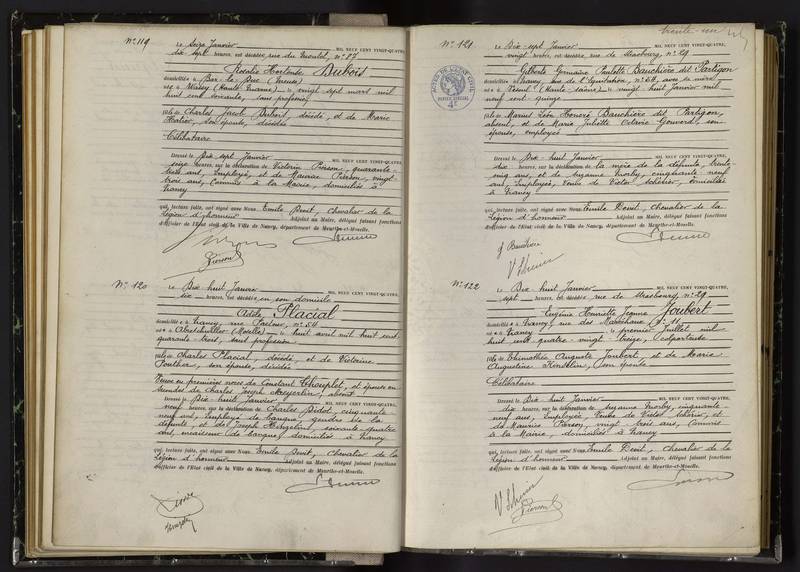 N° 119
Le Seize Janvier MIL NEUF CENT VINGT-QUATRE,
dix sept heures, est décédée, rue du Montet, n° 87
Rosalie Hortense Dubois
domiciliée à Bar-le-Duc (Meuse)
née à Wassy (Haute Marne) le vingt sept mars mil
huit cent soixante, sans profession,
fille de Charles Jacob Dubois, décédé, et de Marie
son épouse, décédée
Célibataire
Dressé le Dix-sept Janvier MIL NEUF CENT VINGT-QUATRE,
seize heures, sur la déclaration de Victorin Pierson, quarante-
ans, Employé, et de Maurice Pierson, vingt-
trois ans, Commis à la Mairie, domiciliés à
Nancy
qui, lecture faite, ont signé avec Nous Emile chevalier de la
Légion d'honneur Adjoint au Maire, délégué faisant fonctions
d'officier de l'Etat civil de la Ville de Nancy, département de Meurthe-et-Moselle.
Pierson
N° 120
Le Dix huit Janvier MIL NEUF CENT VINGT-QUATRE,
six heures, est décédée en son domicile
Adèle Placial
domiciliée à Nancy, rue Pasteur, n° 54
née à Abreschviller (Moselle) le huit avril mil huit cent
quarante trois, sans profession
fille de Charles Placial, décédé, et de Victorine
son épouse, décédée
Veuve en premières noces de Constant Chouplet, et épouse en
secondes de Charles Joseph absent
Dressé le Dix huit Janvier MIL NEUF CENT VINGT-QUATRE,
neuf heures, sur la déclaration de Charles Didot, cinquante-
neuf ans, Employé de banque, gendre de la
défunte, et de Joseph soixante-quatre
ans, encaisseur de banque, domiciliés à Nancy
qui, lecture faite, ont signé avec Nous Emile chevalier de la
Légion d'honneur Adjoint au Maire, délégué faisant fonctions
d'officier de l'Etat civil de la Ville de Nancy, département de Meurthe-et-Moselle.
trente-un
N° 121
Le Dix-sept Janvier MIL NEUF CENT VINGT-QUATRE,
vingt heures, est décédée, rue de Strasbourg, n° 29
Gilberte Germaine Paulette Bauchière dit Partigon
domiciliée à Nancy, rue de l'Equitation, n° 68, avec sa mère
née à Vesoul (Haute-Saône) le vingt huit Janvier mil
neuf cent quinze
fille de Marius Léon Honoré Bauchière dit Partigon,
absent, et de Marie Juliette Octavie son
épouse, employée
Dressé le Dix-huit Janvier MIL NEUF CENT VINGT-QUATRE,
dix heures, sur la déclaration de la mère de la défunte, trente-
cinq ans, et de Suzanne cinquante neuf
ans, Employée, Veuve de Victor domiciliées
à Nancy
qui, lecture faite, ont signé avec Nous Emile chevalier de la
Légion d'honneur Adjoint au Maire, délégué faisant fonctions
d'officier de l'Etat civil de la Ville de Nancy, département de Meurthe-et-Moselle.
J Bauchière
N° 122
Le Dix-huit Janvier MIL NEUF CENT VINGT-QUATRE,
sept heures, est décédée rue de Strasbourg, n° 29
Eugénie Henriette Jeanne Joubert
domiciliée à Nancy, rue des Maréchaux, n° 11
née à Nancy le premier Juillet mil
huit cent quatre-vingt treize,
fille de Timothée Auguste Joubert, et de Marie
Augustine son épouse
Célibataire
Dressé le Dix-huit Janvier MIL NEUF CENT VINGT-QUATRE,
dix heures, sur la déclaration de Suzanne cinquante-
neuf ans, Employée, Veuve de Victor et
de Maurice Pierson, vingt trois ans, Commis
à la Mairie, domiciliés à Nancy
qui, lecture faite, ont signé avec Nous Emile chevalier de la
Légion d'honneur Adjoint au Maire, délégué faisant fonctions
d'officier de l'Etat civil de la Ville de Nancy, département de Meurthe-et-Moselle.
Pierson